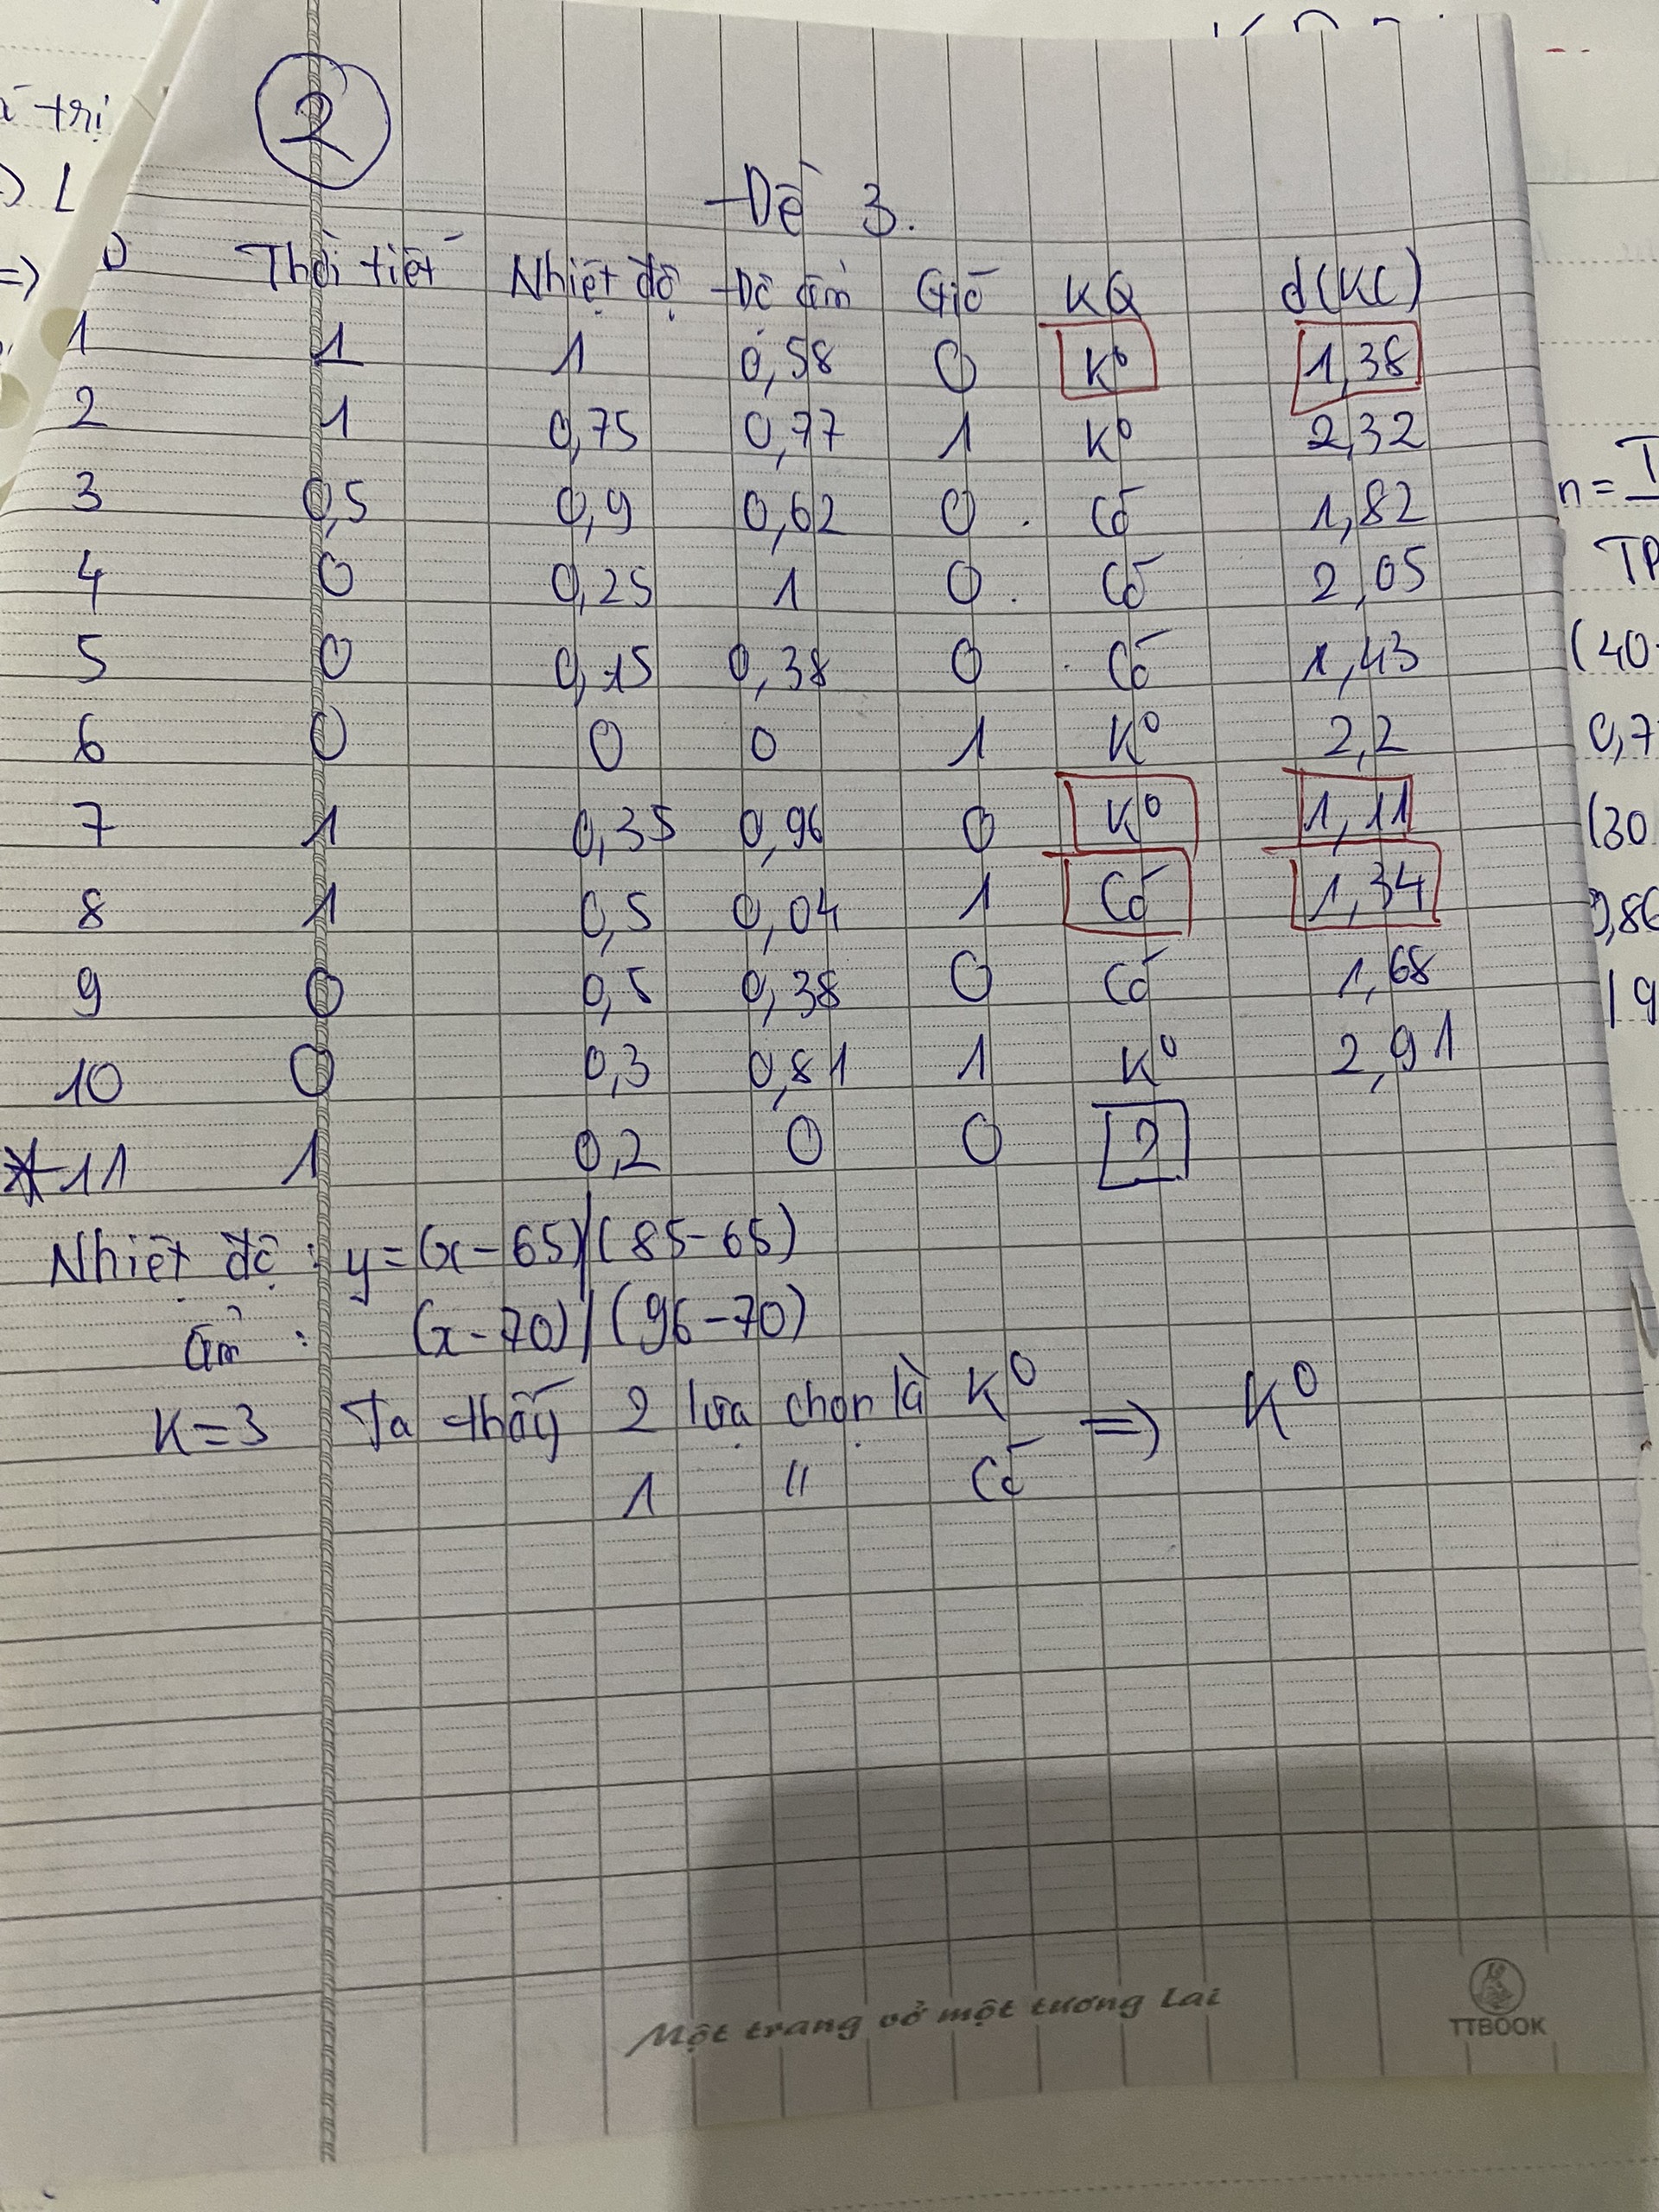 ả trị
2
=) L
Đề 3.
=)
D Thời tiết Nhiệt độ Độ ẩm Gió KQ d(KC)
1 1 1 0,58 0 K⁰ 1,38
2 1 0,75 0,77 1 K⁰ 2,32
3 0,5 0,9 0,62 0 Có 1,82
4 0 0,25 1 0 Có 2,05
5 0 0,15 0,38 0 Có 1,43
6 0 0 0 1 K⁰ 2,2
7 1 0,35 0,96 0 K⁰ 1,11
8 1 0,5 0,04 1 Có 1,34
9 0 0,5 0,38 0 Có 1,68
10 0 0,3 0,81 1 K⁰ 2,91
* 11 1 0,2 0 0 ?
Nhiệt độ : y = (x - 65)/(85-65)
ẩm : (x - 70)/(96-70)
K=3 Ta thấy 2 lựa chọn là K⁰ => K⁰
1 " Có
n = T
TP
(40
0,7
(30
0,86
19
Một trang vở một tương lai
TTBOOK